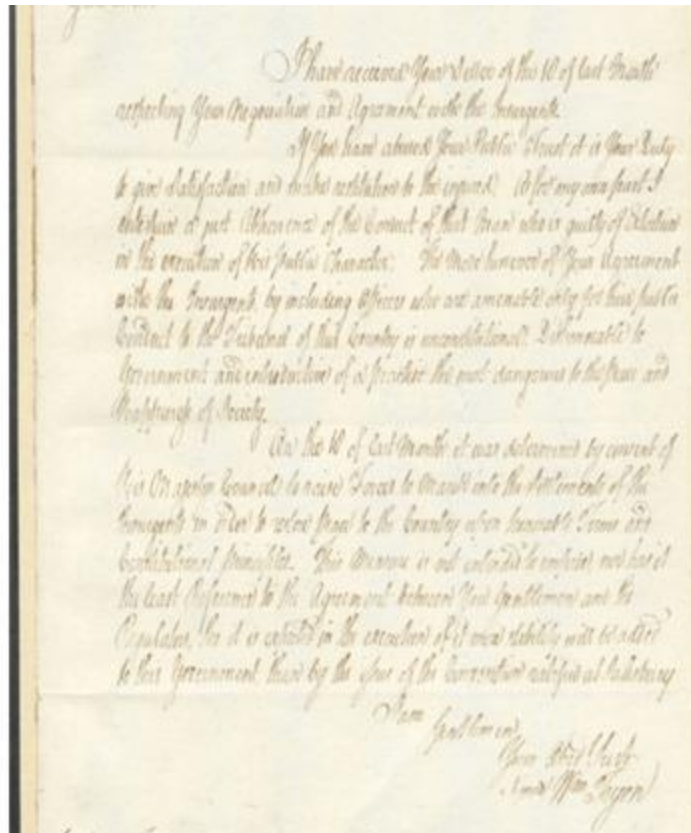 Gentlemen
I have received Your Letter of the 18 of last Month
respecting Your Negociation and Agreement with the Insurgents.
If You have abused Your Public Trust it is Your Duty
to give Satisfaction and make restitution to the injured. As for my own part I
entertain a just Abhorrence of the Conduct of that Man who is guilty of Extortion
in the execution of his public Character. The Mode however of Your Agreement
with the Insurgents, by including Officers who are amenable only for their public
Conduct to the Tribunal of this Country is unconstitutional: Dishonorable to
Government and introductive of a practice the most dangerous to the Peace and
Happiness of Society.
On the 18 of last Month it was determined by consent of
His Majestys Council to raise Forces to March into the Settlements of the
Insurgents in order to restore Peace to the Country upon honorable Terms and
Constitutional Principles. This Measure is not intended to nor has it
the least Reference to the Agreement between You Gentlemen and the
Regulators, tho' it is expected in the execution of it more stability will be added
to this Government than by the of the Convention at Salisbury
I am
Gentlemen
Your Obed Serv
Signed Wm Tryon